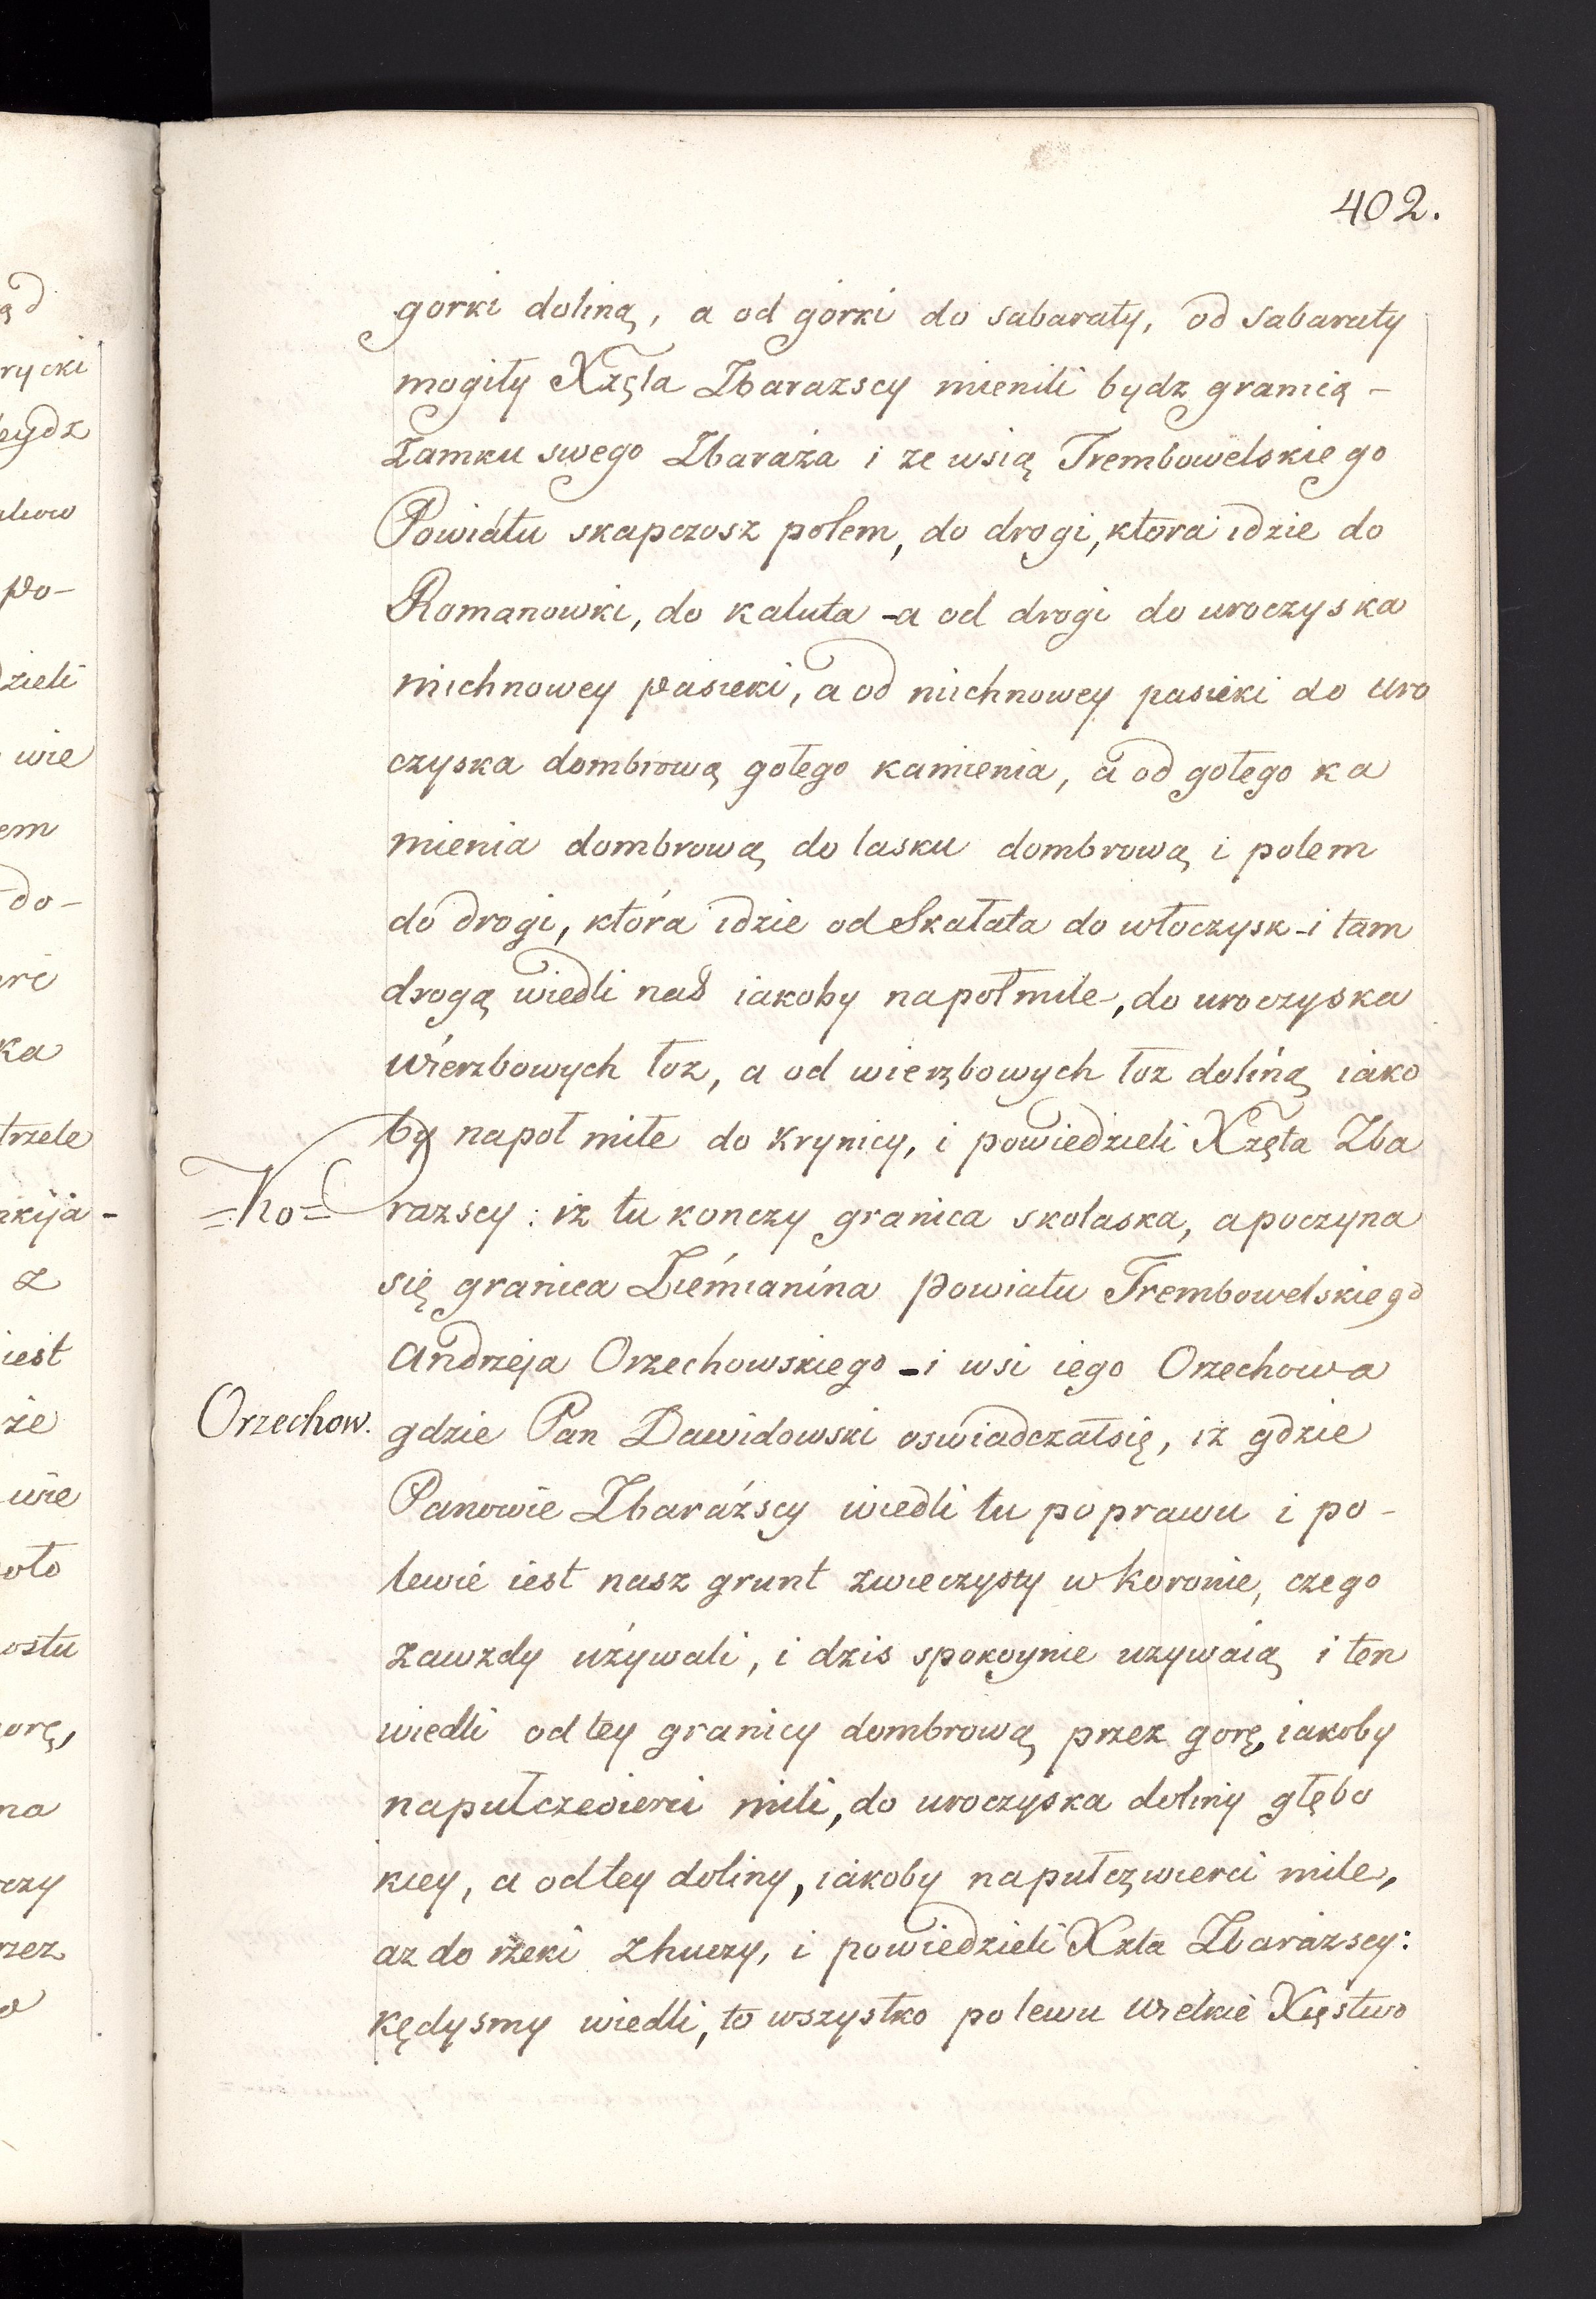 402.
gorki doliną, a od górki do sabaraty, od sabaraty
mogiły Xzęta Zbarazscy mienili bydz granicą -
Zamku swego Zbaraża i ze wsią Trembowelskiego
Powiatu skapczosz polem, do drogi, ktora idzie do
Romanowki, do kaluta - a od drogi do uroczyska
michnowey pasieki, a od michnowey pasieki do uro
czyska dombrową gołego kamienia, a od gołego ka
mienia dombrową do lasku dombrową i polem
do drogi, która idzie od Skałata do włoczysk - i tam
drogą wiedli nas iakoby napoł mile, do uroczyska
wierzbowych łoz, a od wierzbowych łoz doliną iako
by napoł mile do krynicy, i powiedzieli Xzęta Zba
=Ko=
razscy: iz tu konczy granica skolaska, a poczyna
się granica Ziemianina Powiatu Trembowelskiego
Andrzeja Orzechowskiego - i wsi iego Orzechowa
Orzechow.
gdzie Pan Dawidowski oswiadczał się, iz gdzie
Panowie Zbaraźscy wiedli tu po prawu i po -
lewie iest nasz grunt zwieczysty w koronie, czego
zawzdy używali, i dzis spokoynie uzywaią i ten
wiedli od tey granicy dombrową przez gorę, iakoby
napułczewierci mili, do uroczyska doliny głębo
kiey, a od tey doliny, iakoby napułczwierci mile,
az do rzeki Zhuczy, i powiedzieli Xzta Zbarażscy:
kędysmy wiedli, to wszystko po lewu Wielkie Xięstwo